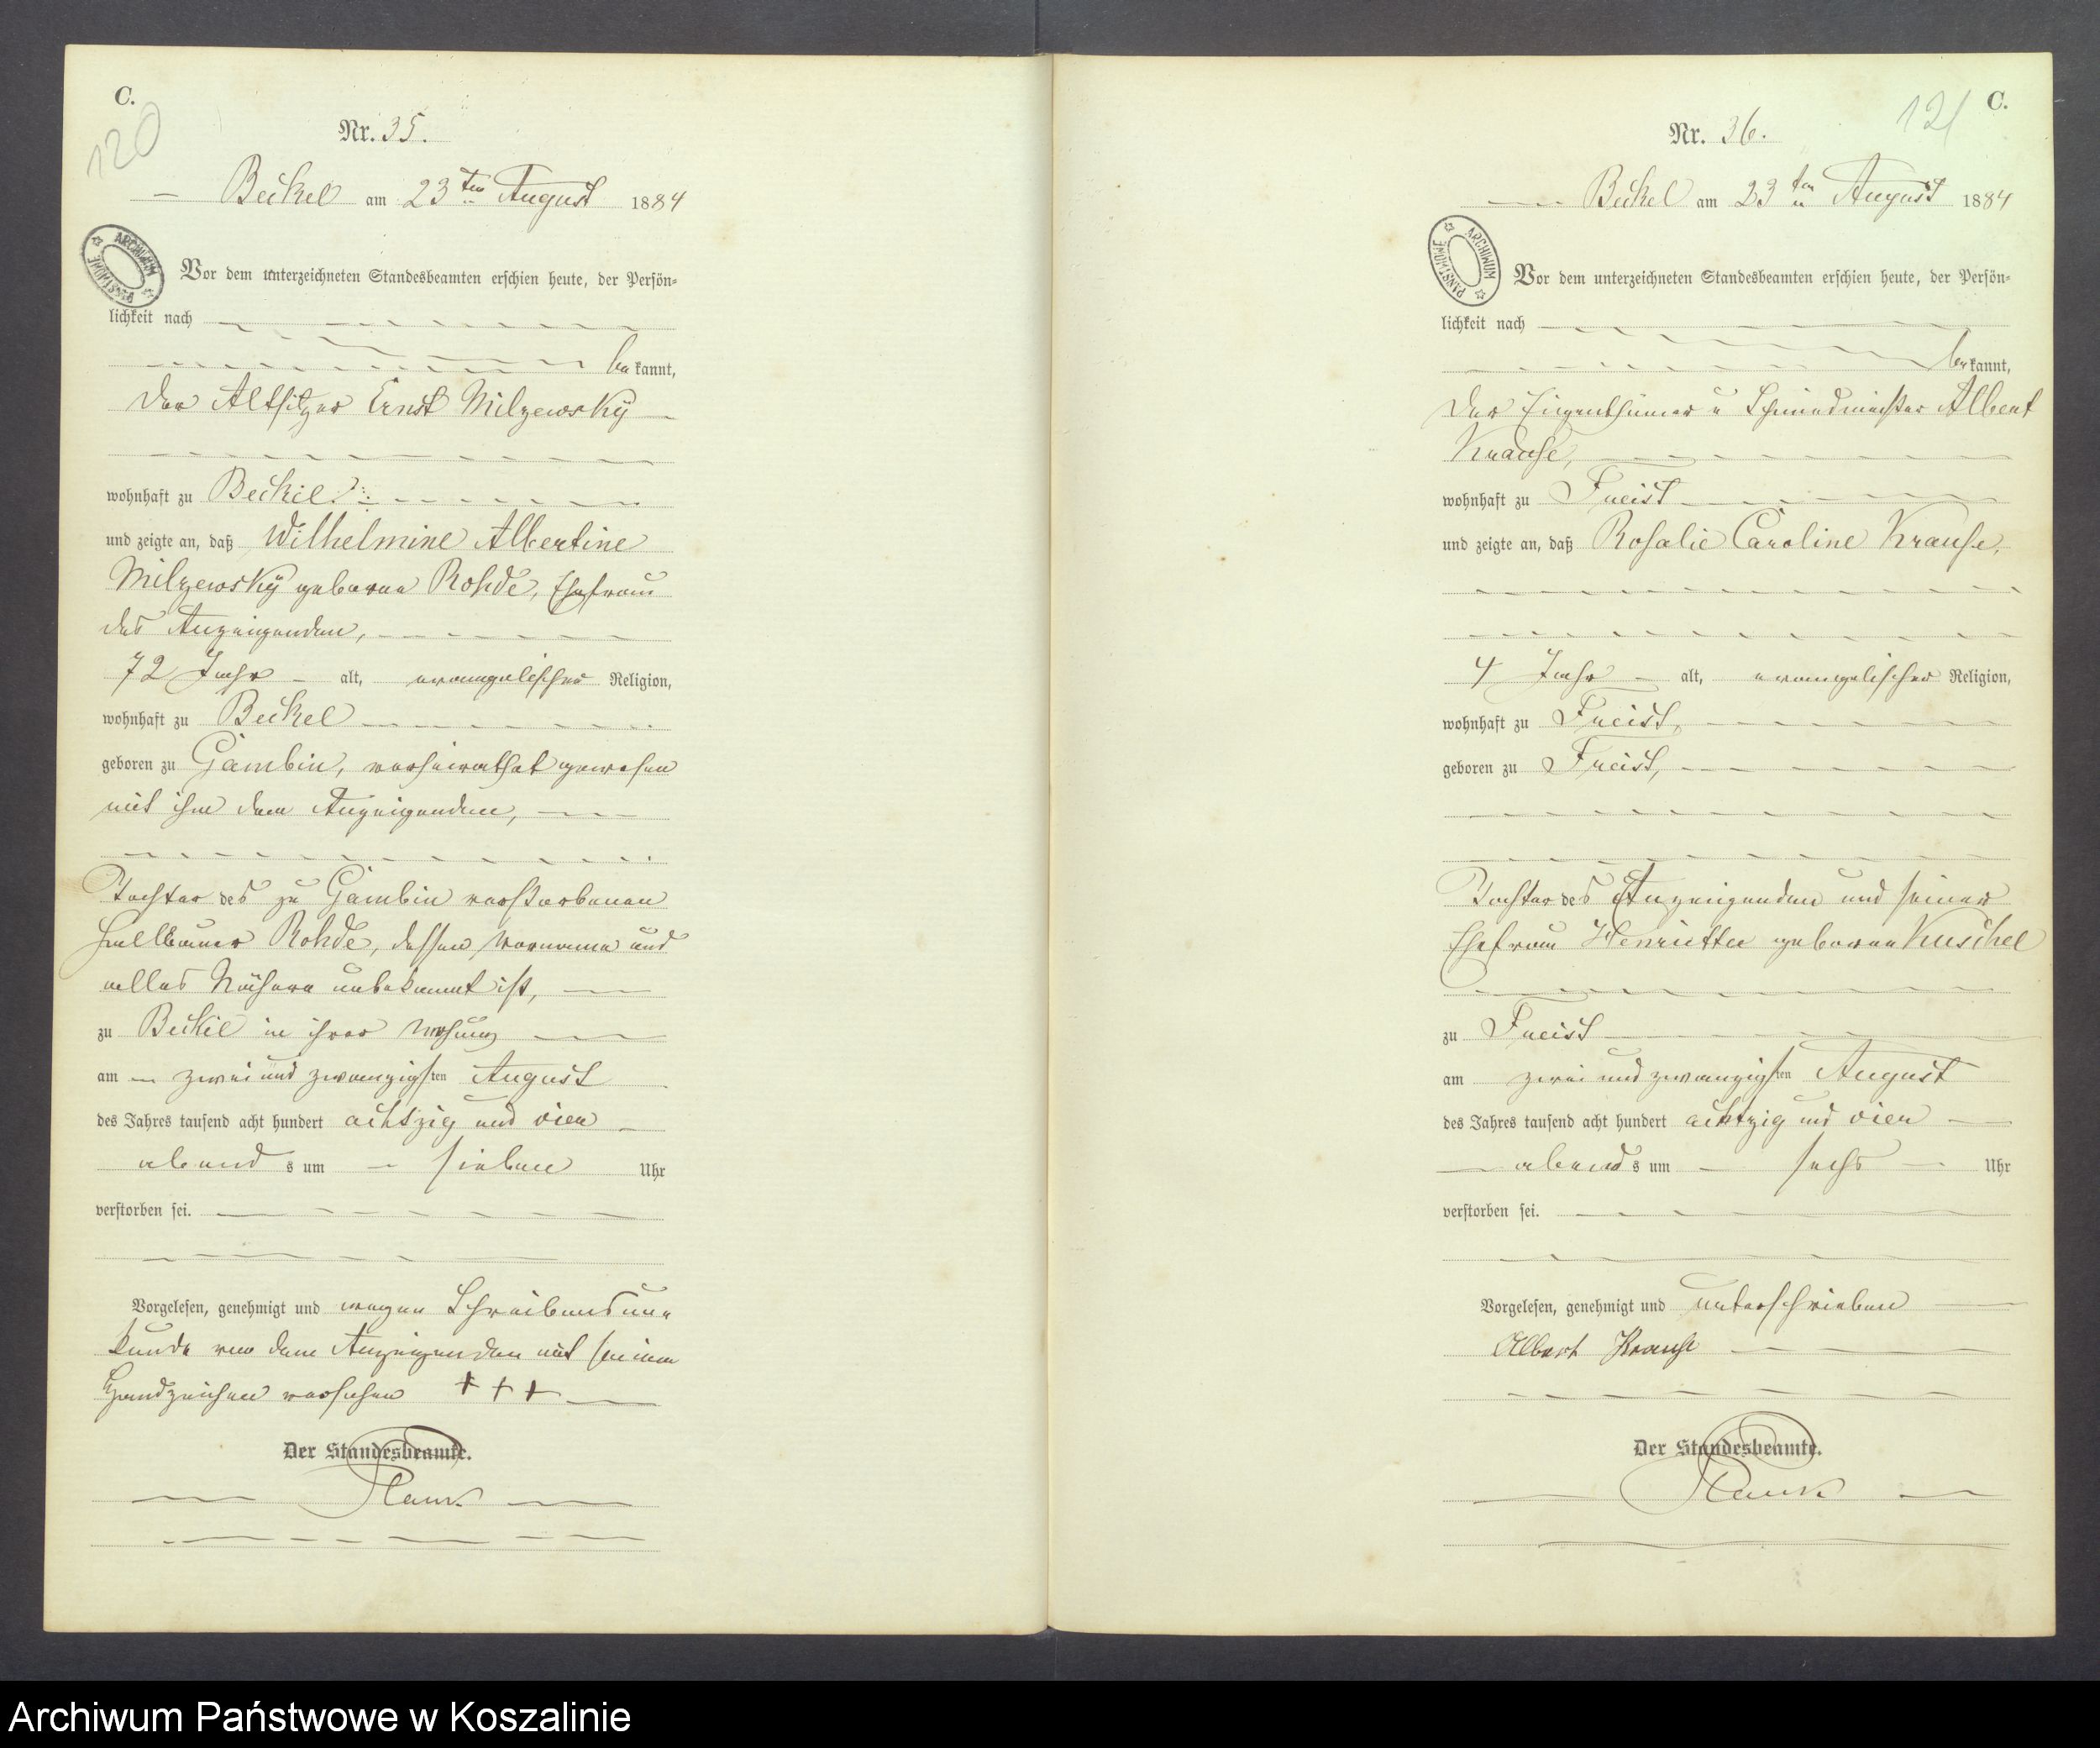 C.
120
Nr. 35.
Beckel am 23ten August 1884
ARCHIWUM PAŃSTWOWE
Vor dem unterzeichneten Standesbeamten erschien heute, der Persön-
lichkeit nach
bekannt,
der Altsitzer Ernst Milzewsky
wohnhaft zu Beckel
und zeigte an, daß Wilhelmine Albertine
Milzewsky geborene Rohde, Ehefrau
des Anzeigenden,
72 Jahr alt, evangelischer Religion,
wohnhaft zu Beckel
geboren zu Gambin, verheirathet gewesen
mit ihm dem Anzeigenden,
Tochter des zu Gambin verstorbenen
Halbbauer Rohde, dessen Vorname und
alles Nähere unbekannt ist,
zu Beckel in ihrer Wohnung
am zwei und zwanzigsten August
des Jahres tausend acht hundert achtzig und vier
abends um sieben Uhr
verstorben sei.
Vorgelesen, genehmigt und wegen Schreibensun-
kunde von dem Anzeigenden mit seinem
Handzeichen versehen + + +
Der Standesbeamte.
C.
121
Nr. 36.
Beckel am 23ten August 1884
ARCHIWUM PAŃSTWOWE
Vor dem unterzeichneten Standesbeamten erschien heute, der Persön-
lichkeit nach
bekannt,
der Eigenthümer u Schmiedmeister Albert
Krause,
wohnhaft zu Freist
und zeigte an, daß Rosalie Caroline Krause,
4 Jahr alt, evangelischer Religion,
wohnhaft zu Freist,
geboren zu Freist,
Tochter des Anzeigenden und seiner
Ehefrau Henriette geborene Kuschel
zu Freist
am zwei und zwanzigsten August
des Jahres tausend acht hundert achtzig und vier
abends um sechs Uhr
verstorben sei.
Vorgelesen, genehmigt und unterschrieben
Albert Krause
Der Standesbeamte.
Archiwum Państwowe w Koszalinie